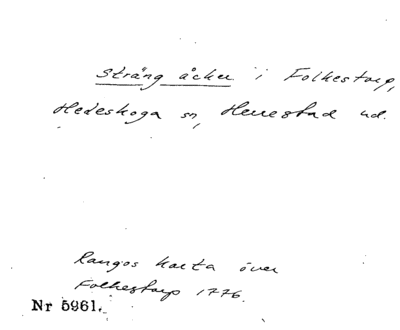 Sträng åcker i Folkestorp,
Hedeskoga sn, Herrestad hd.
Rangos karta över
Folkestorp 1776.
Nr 5961.